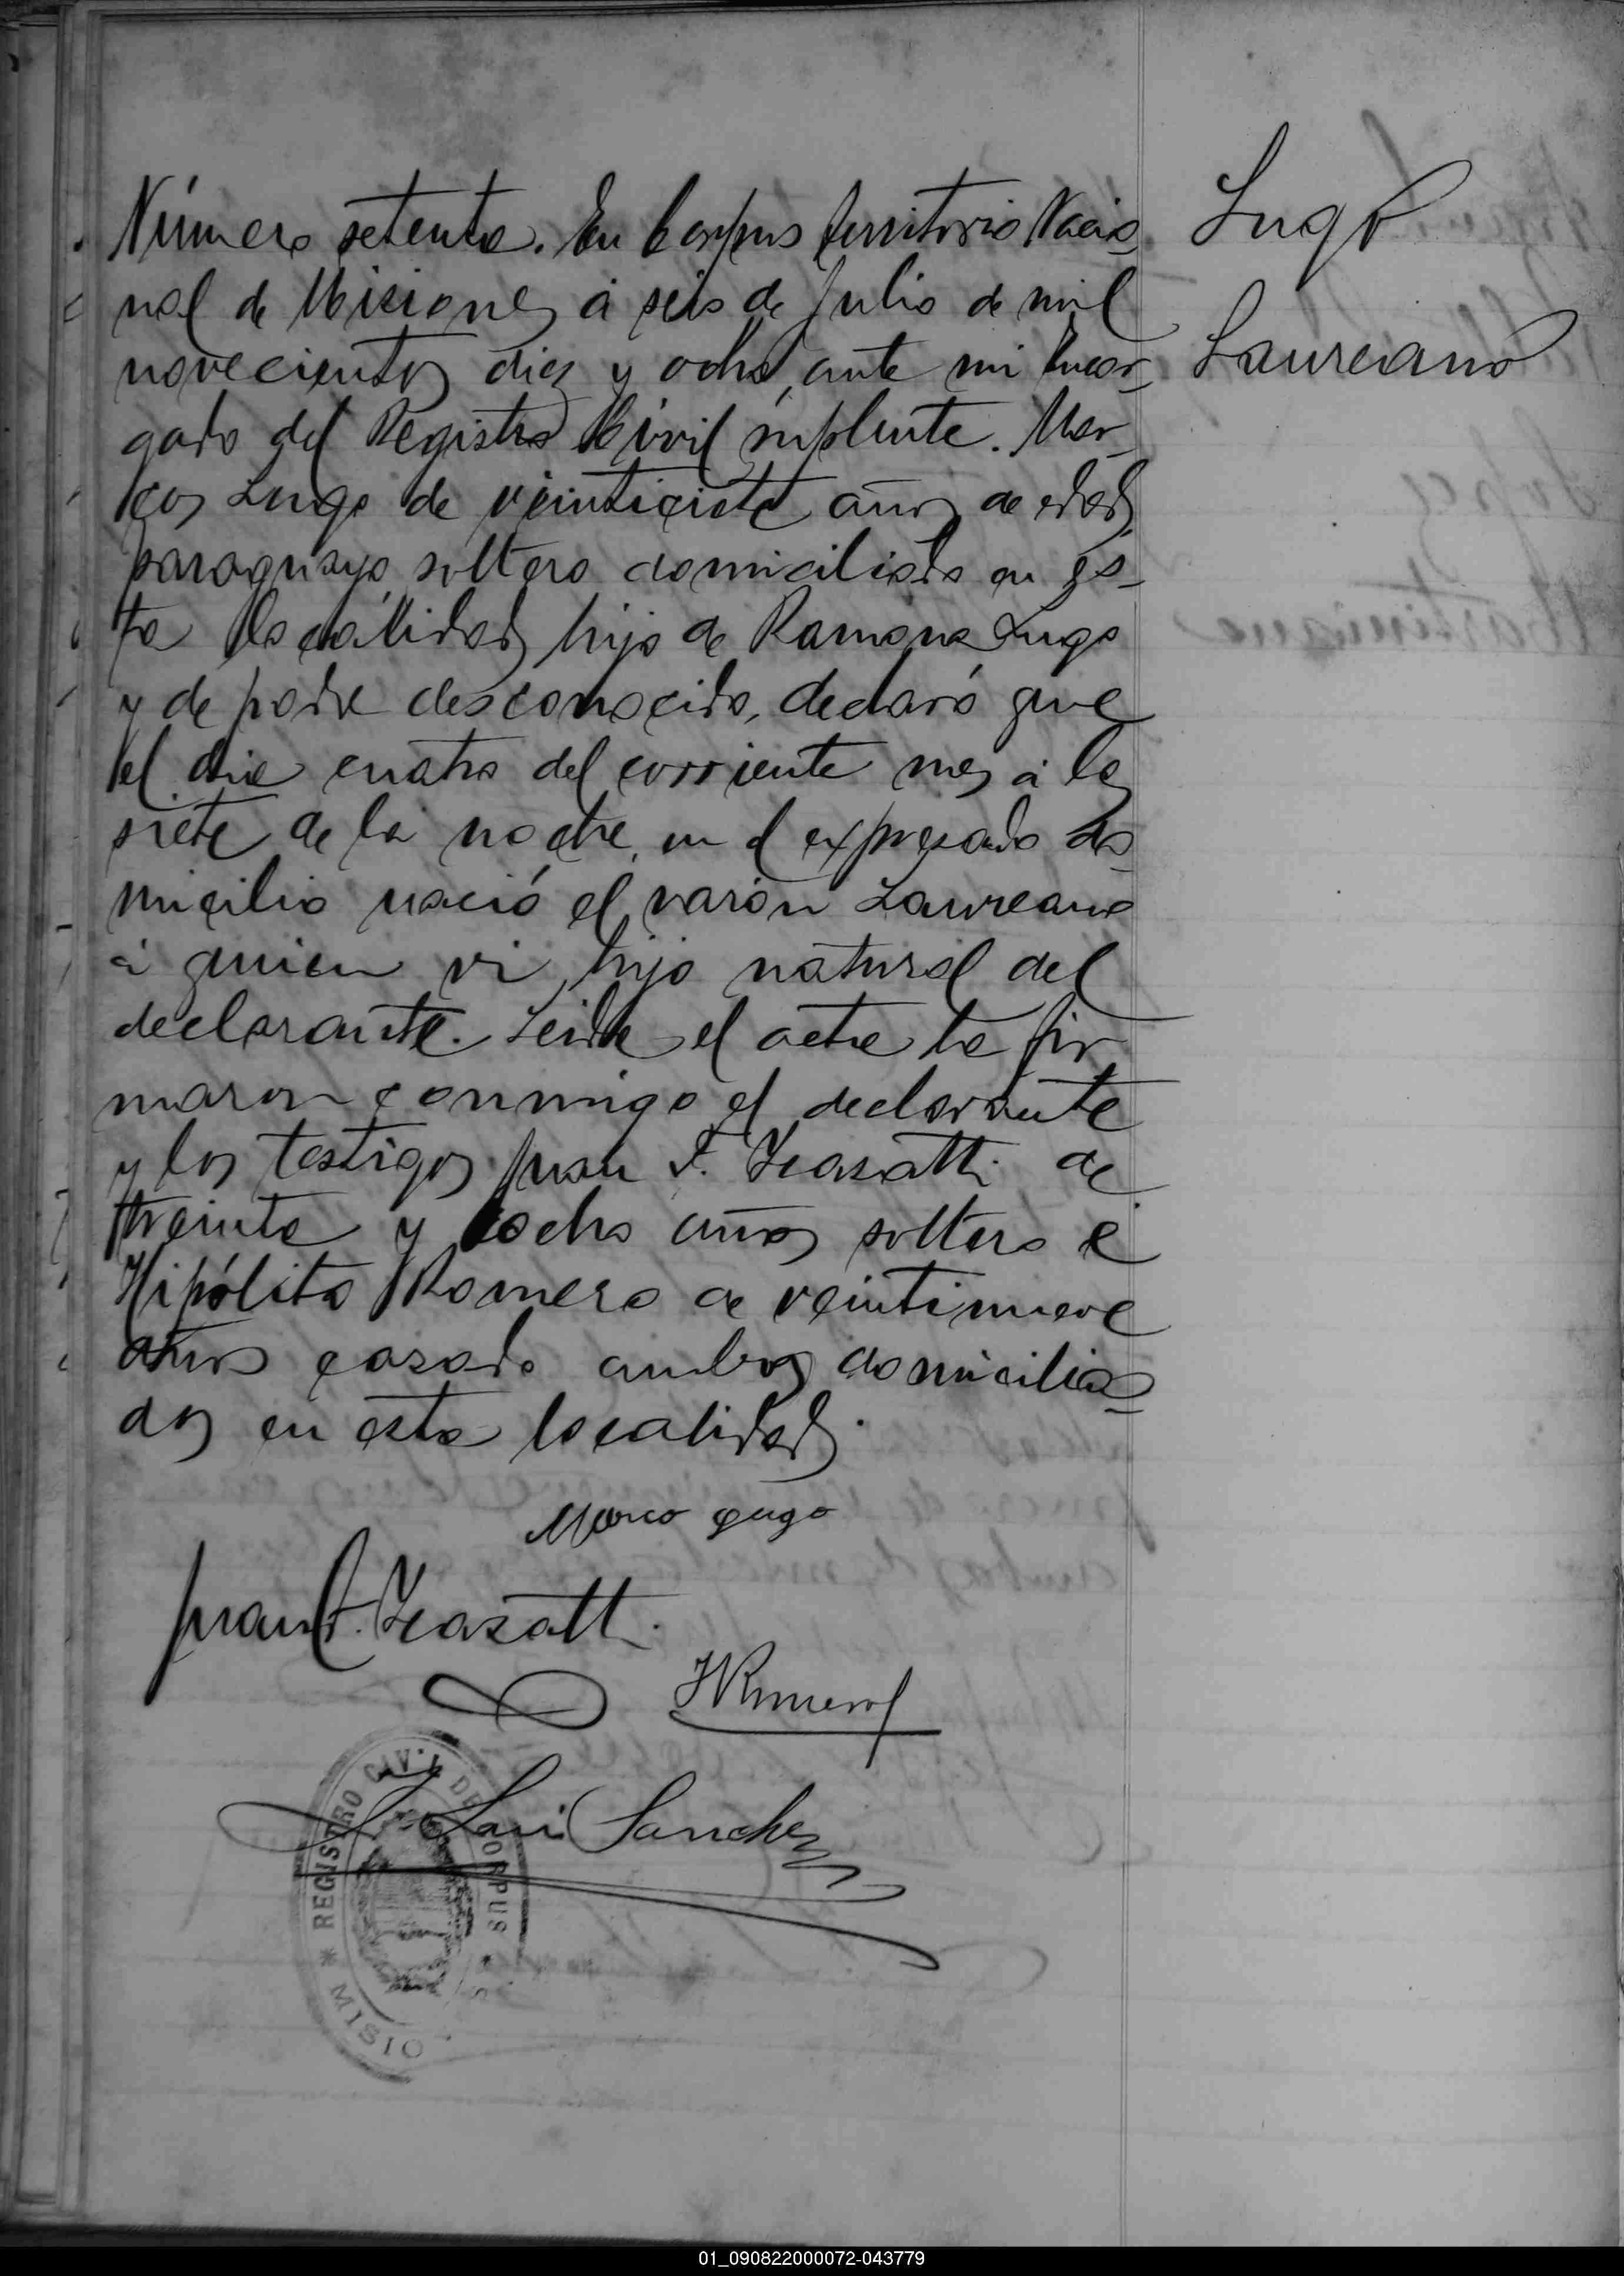 Número setenta. En Corpus Territorio Nacio
nal de Misiones á seis de Julio de mil
novecientos diez y ocho, ante mi Encar-
gado del Registro Civil suplente. Mar-
cos Lugo de veintisiete años de edad,
paraguayo, soltero domiciliado en es-
ta localidad, hijo de Ramona Lugo
y de padre desconocido, declaró que
el dia cuatro del corriente mes á las
siete de la noche, en el expresado do-
micilio nació el varón Laureano
á quien vi, hijo natural del
declarante. Leida el acta la fir
maron conmigo el declarante
y los testigos Juan F. de
treinta y ocho años soltero é
Hipólito Romero de veintinueve
años casado ambos domicilia=
dos en esta localidad.
Lugo
Laureano
Marco Lugo
Juan F.
HRomero
Luis Sanchez
* REGISTRO CIVIL DE CORPUS *
MISIO
01_090822000072-043779